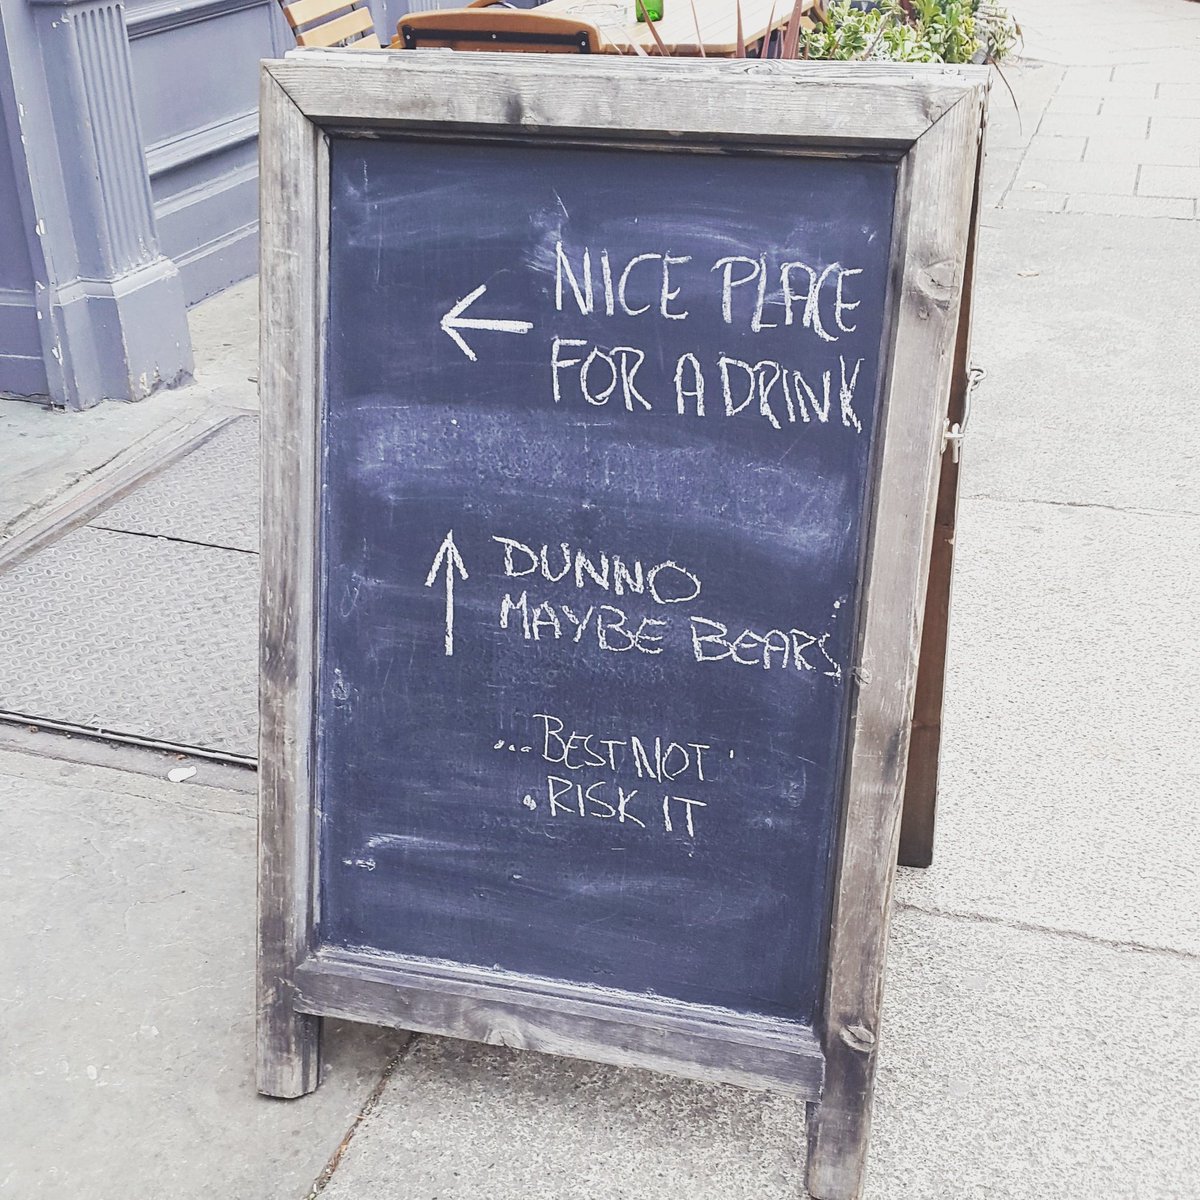 ← NICE PLACE
FOR A DRINK
↑ DUNNO
MAYBE BEARS
...BEST NOT
RISK IT